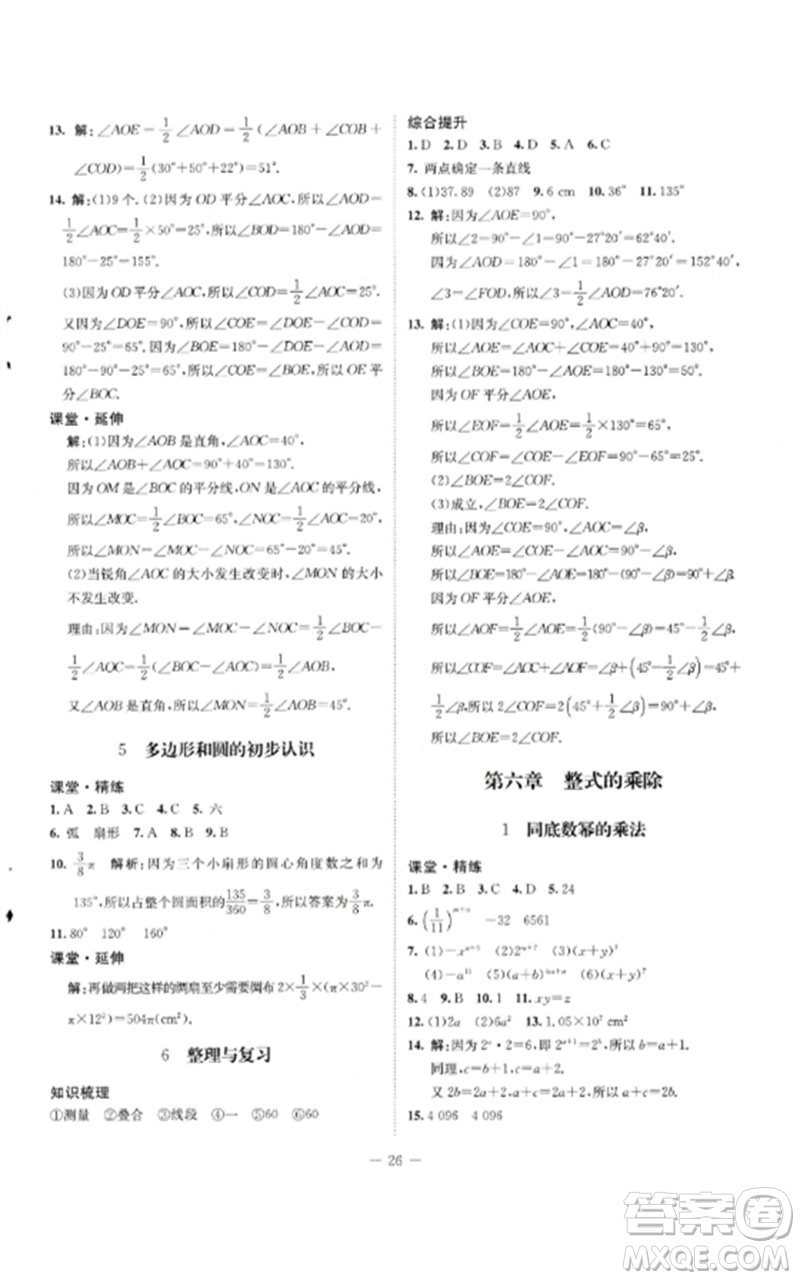 13. 解:∠AOE=1/2∠AOD=1/2(∠AOB+∠COB+
∠COD)=1/2(30°+50°+22°)=51°.
14. 解:(1)9个.(2)因为OD平分∠AOC,所以∠AOD=
1/2∠AOC=1/2×50°=25°,所以∠BOD=180°-∠AOD=
180°-25°=155°.
(3)因为OD平分∠AOC,所以∠COD=1/2∠AOC=25°.
又因为∠DOE=90°,所以∠COE=∠DOE-∠COD=
90°-25°=65°.因为∠BOE=180°-∠DOE-∠AOD=
180°-90°-25°=65°,所以∠COE=∠BOE,所以OE平
分∠BOC.
课堂·延伸
解:(1)因为∠AOB是直角,∠AOC=40°,
所以∠AOB+∠AOC=90°+40°=130°.
因为OM是∠BOC的平分线,ON是∠AOC的平分线,
所以∠MOC=1/2∠BOC=65°,∠NOC=1/2∠AOC=20°,
所以∠MON=∠MOC-∠NOC=65°-20°=45°.
(2)当锐角∠AOC的大小发生改变时,∠MON的大小
不发生改变.
理由:∠MON=∠MOC-∠NOC=1/2∠BOC-
1/2∠AOC=1/2(∠BOC-∠AOC)=1/2∠AOB,
又∠AOB是直角,所以∠MON=1/2∠AOB=45°.
5 多边形和圆的初步认识
课堂·精练
1. A 2. B 3. C 4. C 5. 六
6. 弧 扇形 7. A 8. B 9. B
10. 3/8π 解析:因为三个小扇形的圆心角度数之和为
135°,所以占整个圆面积的135/360=3/8,所以答案为3/8π.
11. 80° 120° 160°
课堂·延伸
解:再做两把这样的绸扇至少需要绸布2×1/3×(π×30²-
π×12²)=504π(cm²).
6 整理与复习
知识梳理
①测量 ②叠合 ③线段 ④一 ⑤60 ⑥60
综合提升
1. D 2. D 3. B 4. D 5. A 6. C
7. 两点确定一条直线
8. (1)37.89 (2)87 9. 6 cm 10. 36° 11. 135°
12. 解:因为∠AOE=90°,
所以∠2=90°-∠1=90°-27°20′=62°40′.
因为∠AOD=180°-∠1=152°40′,
∠3=∠FOD,所以∠3=1/2∠AOD=76°20′.
13. 解:(1)因为∠COE=90°,∠AOC=40°,
所以∠AOE=∠AOC+∠COE=130°,
所以∠BOE=180°-∠AOE=50°.
因为OF平分∠AOE,
所以∠EOF=1/2∠AOE=1/2×130°=65°.
(2)∠BOE=2∠COF.
(3)成立,∠BOE=2∠COF.
理由:因为∠COE=90°,∠AOC=∠β,
所以∠AOE=90°-∠β,
所以∠BOE=180°-∠AOE=90°+∠β.
因为OF平分∠AOE,
所以∠AOF=1/2∠AOE=1/2(90°-∠β)=45°-1/2∠β,
所以∠COF=∠AOC+∠AOF=∠β+(45°-1/2∠β)=45°+
1/2∠β,所以2∠COF=2(45°+1/2∠β)=90°+∠β,
所以∠BOE=2∠COF.
第六章 整式的乘除
1 同底数幂的乘法
课堂·精练
1. B 2. B 3. C 4. D 5. 24
6. (1/11)^(m+n) -32 6561
7. (1)-x^(n+5) (2)2^(m+7) (3)(x+y)⁷
(4)-a¹¹ (5)(a+b)^(3n+6) (6)0
8. 4 9. B 10. 1 11. xy=z
12. (1)2a (2)6a² 13. 1.05×10⁷
14. 解:因为2ᵃ·2=2ᵃ⁺¹=2ᵇ,所以b=a+1.
同理,c=b+1,c=a+2.
又2b=2a+2,a+c=2a+2,所以a+c=2b.
15. 4 096 4 096
— 26 —
答案卷
MXQE.COM